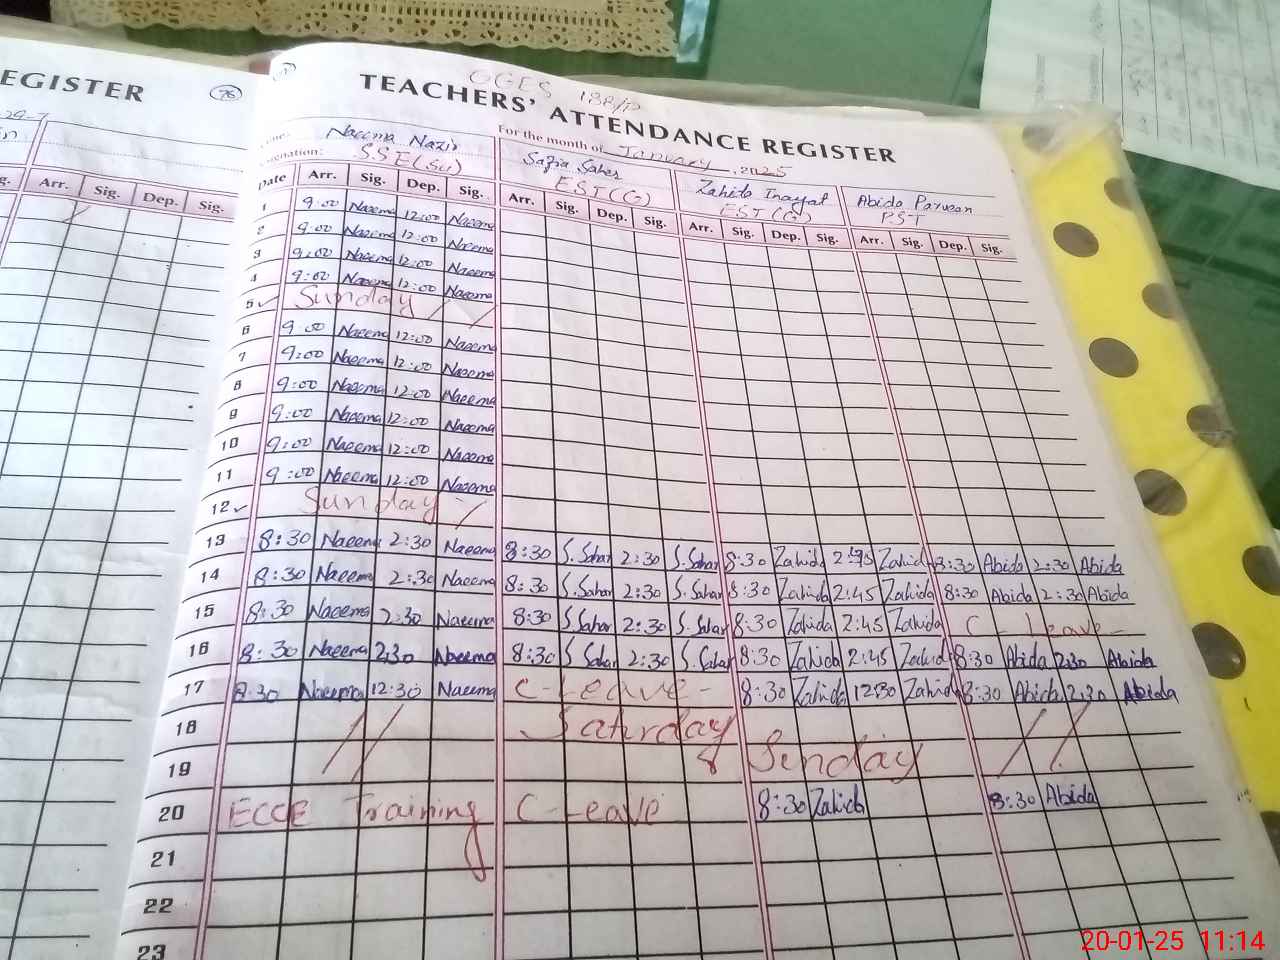 EGISTER
76
Arr. Sig. Dep. Sig.
GGES 188/P
TEACHERS' ATTENDANCE REGISTER
For the month of January, 2025
Naeema Nazir Safia Saher Zahida Inayat Abida Parveen
SSE(SU) EST(G) EST(G) PST
Date Arr. Sig. Dep. Sig. Arr. Sig. Dep. Sig. Arr. Sig. Dep. Sig. Arr. Sig. Dep. Sig.
1 9:00 Naeema 12:00 Naeema
2 9:00 Naeema 12:00 Naeema
3 9:00 Naeema 12:00 Naeema
4 9:00 Naeema 12:00 Naeema
5 Sunday
6 9:00 Naeema 12:00 Naeema
7 9:00 Naeema 12:00 Naeema
8 9:00 Naeema 12:00 Naeema
9 9:00 Naeema 12:00 Naeema
10 9:00 Naeema 12:00 Naeema
11 9:00 Naeema 12:00 Naeema
12 Sunday
13 8:30 Naeema 2:30 Naeema 8:30 S.Sahar 2:30 S.Sahar 8:30 Zahida 2:45 Zahida 8:30 Abida 2:30 Abida
14 8:30 Naeema 2:30 Naeema 8:30 S.Sahar 2:30 S.Sahar 8:30 Zahida 2:45 Zahida 8:30 Abida 2:30 Abida
15 8:30 Naeema 2:30 Naeema 8:30 S.Sahar 2:30 S.Sahar 8:30 Zahida 2:45 Zahida C-Leave-
16 8:30 Naeema 2:30 Naeema 8:30 S.Sahar 2:30 S.Sahar 8:30 Zahida 2:45 Zahida 8:30 Abida 2:30 Abida
17 8:30 Naeema 12:30 Naeema C-Leave- 8:30 Zahida 12:30 Zahida 8:30 Abida 2:30 Abida
18 Saturday
19 & Sunday
20 ECCE Training C-Leave 8:30 Zahida 8:30 Abida
21
22
23
20-01-25 11:14